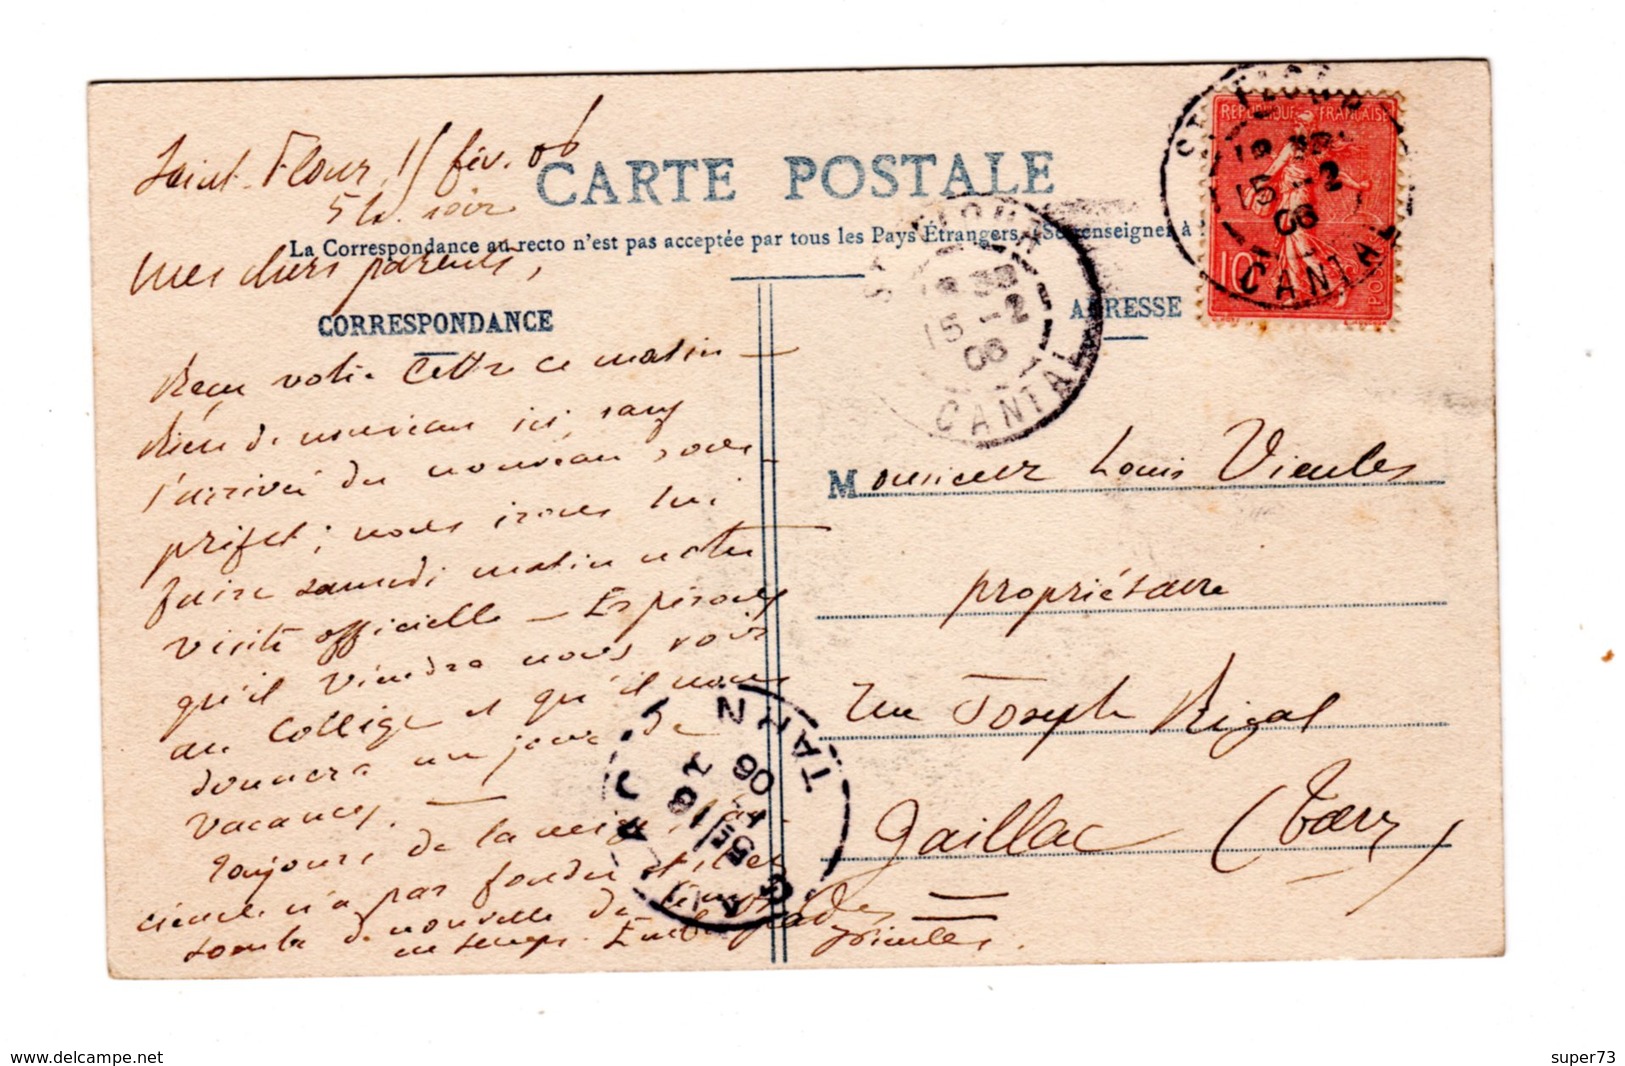 Saint-Flour, 15 fév. 06
5 h. soir
CARTE POSTALE
La Correspondance au recto n'est pas acceptée par tous les Pays Étrangers. (Se renseigner à
Mes chers parents,
CORRESPONDANCE
ADRESSE
Reçu votre lettre ce matin —
Rien de nouveau ici, sauf
l'arrivée du nouveau sous-
préfet ; nous irons lui
faire samedi matin notre
visite officielle — Espérons
qu'il viendra nous voir
au Collège et qu'il nous
donnera un jour de
vacances. —
Toujours de la neige, la
n'a pas fondu et il en
tombe de nouvelle de temps
en temps. Embrassades
Vieules.
Monsieur Louis Vieules
propriétaire
rue Joseph Rigal
Gaillac (Tarn)
REPUBLIQUE FRANÇAISE
10
POSTES
ST FLOUR
15 -2
06
CANTAL
ST FLOUR
15 -2
06
CANTAL
GAILLAC
16 2
06
TARN
www.delcampe.net
super73